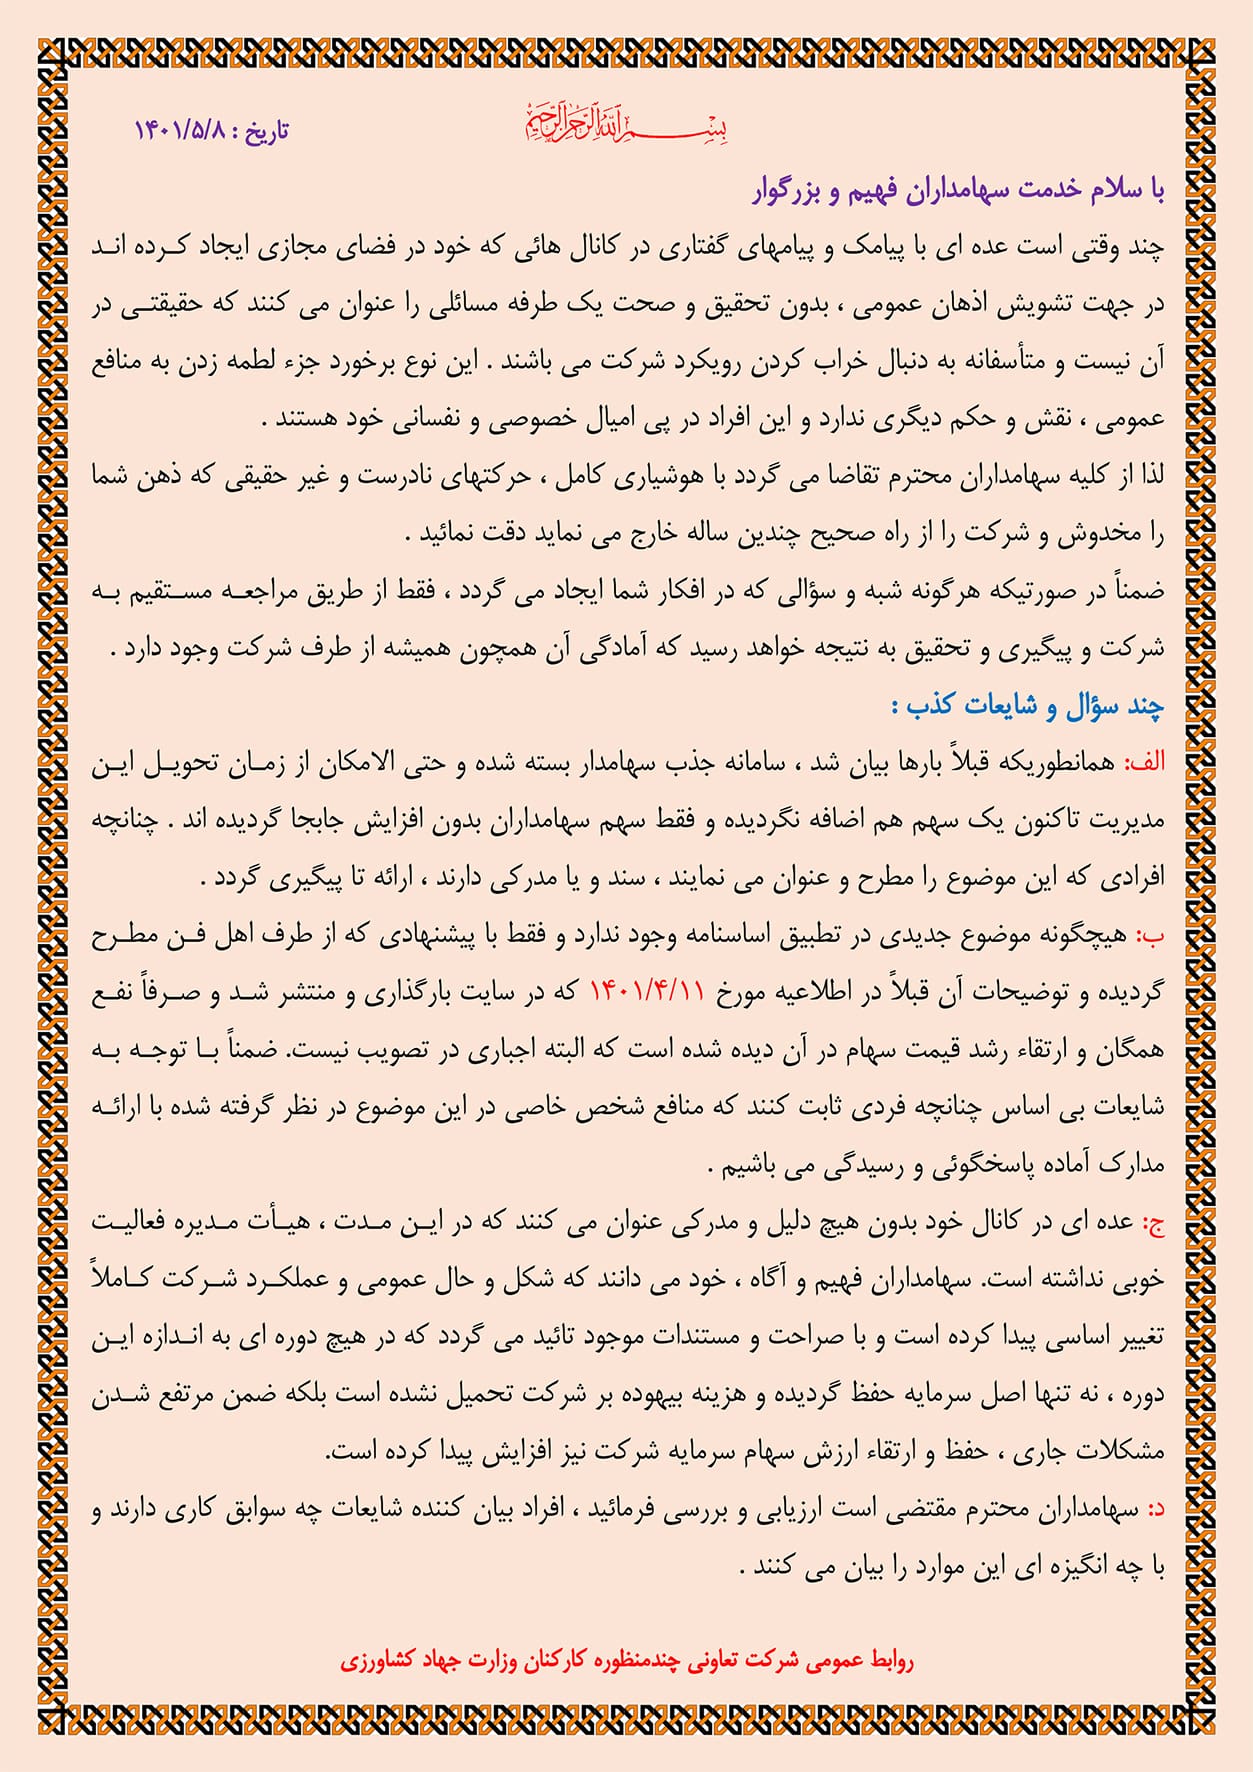 بسم الله الرحمن الرحیم
تاریخ : ۱۴۰۱/۵/۸
با سلام خدمت سهامداران فهیم و بزرگوار
چند وقتی است عده ای با پیامک و پیامهای گفتاری در کانال هائی که خود در فضای مجازی ایجاد کرده اند
در جهت تشویش اذهان عمومی ، بدون تحقیق و صحت یک طرفه مسائلی را عنوان می کنند که حقیقتی در
آن نیست و متأسفانه به دنبال خراب کردن رویکرد شرکت می باشند . این نوع برخورد جزء لطمه زدن به منافع
عمومی ، نقش و حکم دیگری ندارد و این افراد در پی امیال خصوصی و نفسانی خود هستند .
لذا از کلیه سهامداران محترم تقاضا می گردد با هوشیاری کامل ، حرکتهای نادرست و غیر حقیقی که ذهن شما
را مخدوش و شرکت را از راه صحیح چندین ساله خارج می نماید دقت نمائید .
ضمناً در صورتیکه هرگونه شبه و سؤالی که در افکار شما ایجاد می گردد ، فقط از طریق مراجعه مستقیم به
شرکت و پیگیری و تحقیق به نتیجه خواهد رسید که آمادگی آن همچون همیشه از طرف شرکت وجود دارد .
چند سؤال و شایعات کذب :
الف: همانطوریکه قبلاً بارها بیان شد ، سامانه جذب سهامدار بسته شده و حتی الامکان از زمان تحویل این
مدیریت تاکنون یک سهم هم اضافه نگردیده و فقط سهم سهامداران بدون افزایش جابجا گردیده اند . چنانچه
افرادی که این موضوع را مطرح و عنوان می نمایند ، سند و یا مدرکی دارند ، ارائه تا پیگیری گردد .
ب: هیچگونه موضوع جدیدی در تطبیق اساسنامه وجود ندارد و فقط با پیشنهادی که از طرف اهل فن مطرح
گردیده و توضیحات آن قبلاً در اطلاعیه مورخ ۱۴۰۱/۴/۱۱ که در سایت بارگذاری و منتشر شد و صرفاً نفع
همگان و ارتقاء رشد قیمت سهام در آن دیده شده است که البته اجباری در تصویب نیست. ضمناً با توجه به
شایعات بی اساس چنانچه فردی ثابت کنند که منافع شخص خاصی در این موضوع در نظر گرفته شده با ارائه
مدارک آماده پاسخگوئی و رسیدگی می باشیم .
ج: عده ای در کانال خود بدون هیچ دلیل و مدرکی عنوان می کنند که در این مدت ، هیأت مدیره فعالیت
خوبی نداشته است. سهامداران فهیم و آگاه ، خود می دانند که شکل و حال عمومی و عملکرد شرکت کاملاً
تغییر اساسی پیدا کرده است و با صراحت و مستندات موجود تائید می گردد که در هیچ دوره ای به اندازه این
دوره ، نه تنها اصل سرمایه حفظ گردیده و هزینه بیهوده بر شرکت تحمیل نشده است بلکه ضمن مرتفع شدن
مشکلات جاری ، حفظ و ارتقاء ارزش سهام سرمایه شرکت نیز افزایش پیدا کرده است.
د: سهامداران محترم مقتضی است ارزیابی و بررسی فرمائید ، افراد بیان کننده شایعات چه سوابق کاری دارند و
با چه انگیزه ای این موارد را بیان می کنند .
روابط عمومی شرکت تعاونی چندمنظوره کارکنان وزارت جهاد کشاورزی